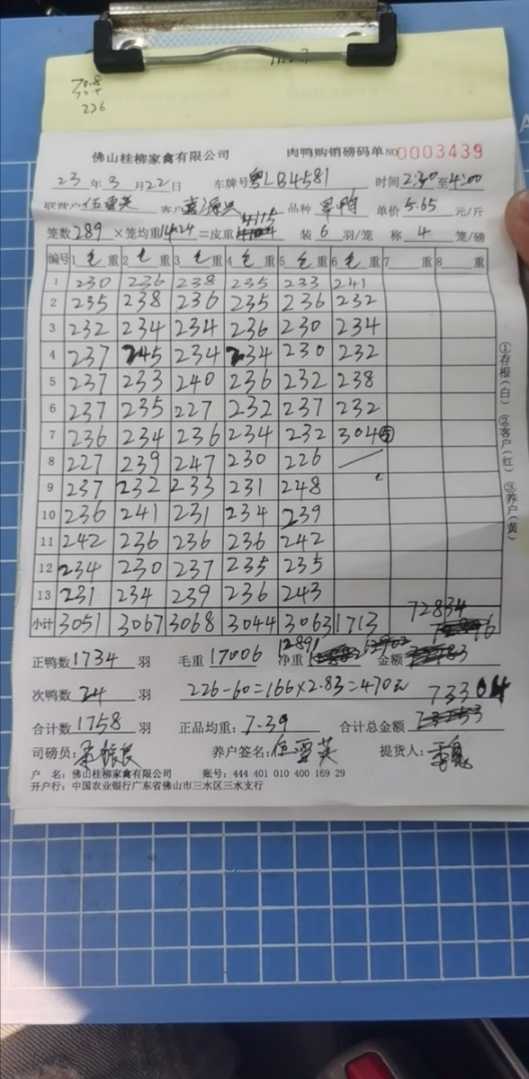 226
佛山桂柳家禽有限公司 肉鸭购销磅码单 NO 0003439
23 年 3 月 22 日 车牌号 粤LB4581 时间 2:30 至 4:00
客户 品种 单价 5.65 元/斤
笼数 289 ×笼均重 14.24 =皮重 4115 装 6 羽/笼 称 4 笼/磅
编号 1 毛 重 2 毛 重 3 毛 重 4 毛 重 5 毛 重 6 毛 重 7 重 8 重
1 230 236 238 235 233 241
2 235 238 236 235 236 232
3 232 234 234 236 230 234
4 237 245 234 234 230 232
5 237 233 240 236 232 238
6 237 235 227 232 237 232
7 236 234 236 234 232 304 ⑤
8 227 239 247 230 226
9 237 232 233 231 248
10 236 241 231 234 239
11 242 236 236 236 242
12 234 230 237 235 235
13 231 234 239 236 243
小计 3051 3067 3068 3044 3063 1713 72834
正鸭数 1734 羽 毛重 17006 净重 12891 金额
次鸭数 24 羽 226-60=166×2.83=470元 73304
合计数 1758 羽 正品均重: 7.39 合计总金额
司磅员: 养户签名: 伍雪英 提货人:
户 名: 佛山桂柳家禽有限公司 账号: 444 401 010 400 169 29
开户行: 中国农业银行广东省佛山市三水区三水支行
①存根(白) ②客户(红) ③养户(黄)